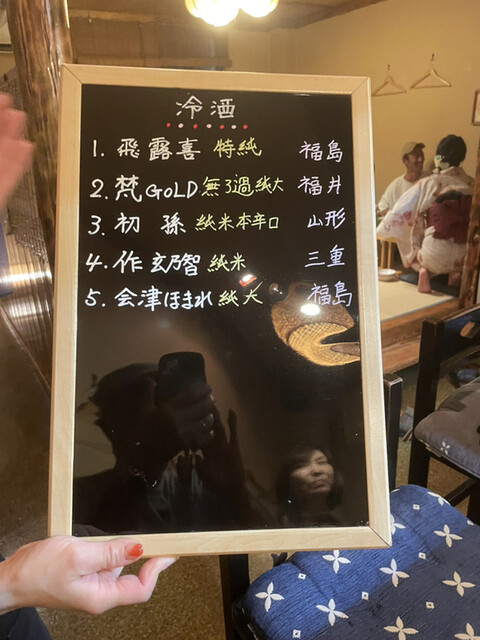 冷酒
1. 飛露喜 特純 福島
2. 梵GOLD 無ろ過純大 福井
3. 初孫 純米本辛口 山形
4. 作 玄乃智 純米 三重
5. 会津ほまれ 純大 福島